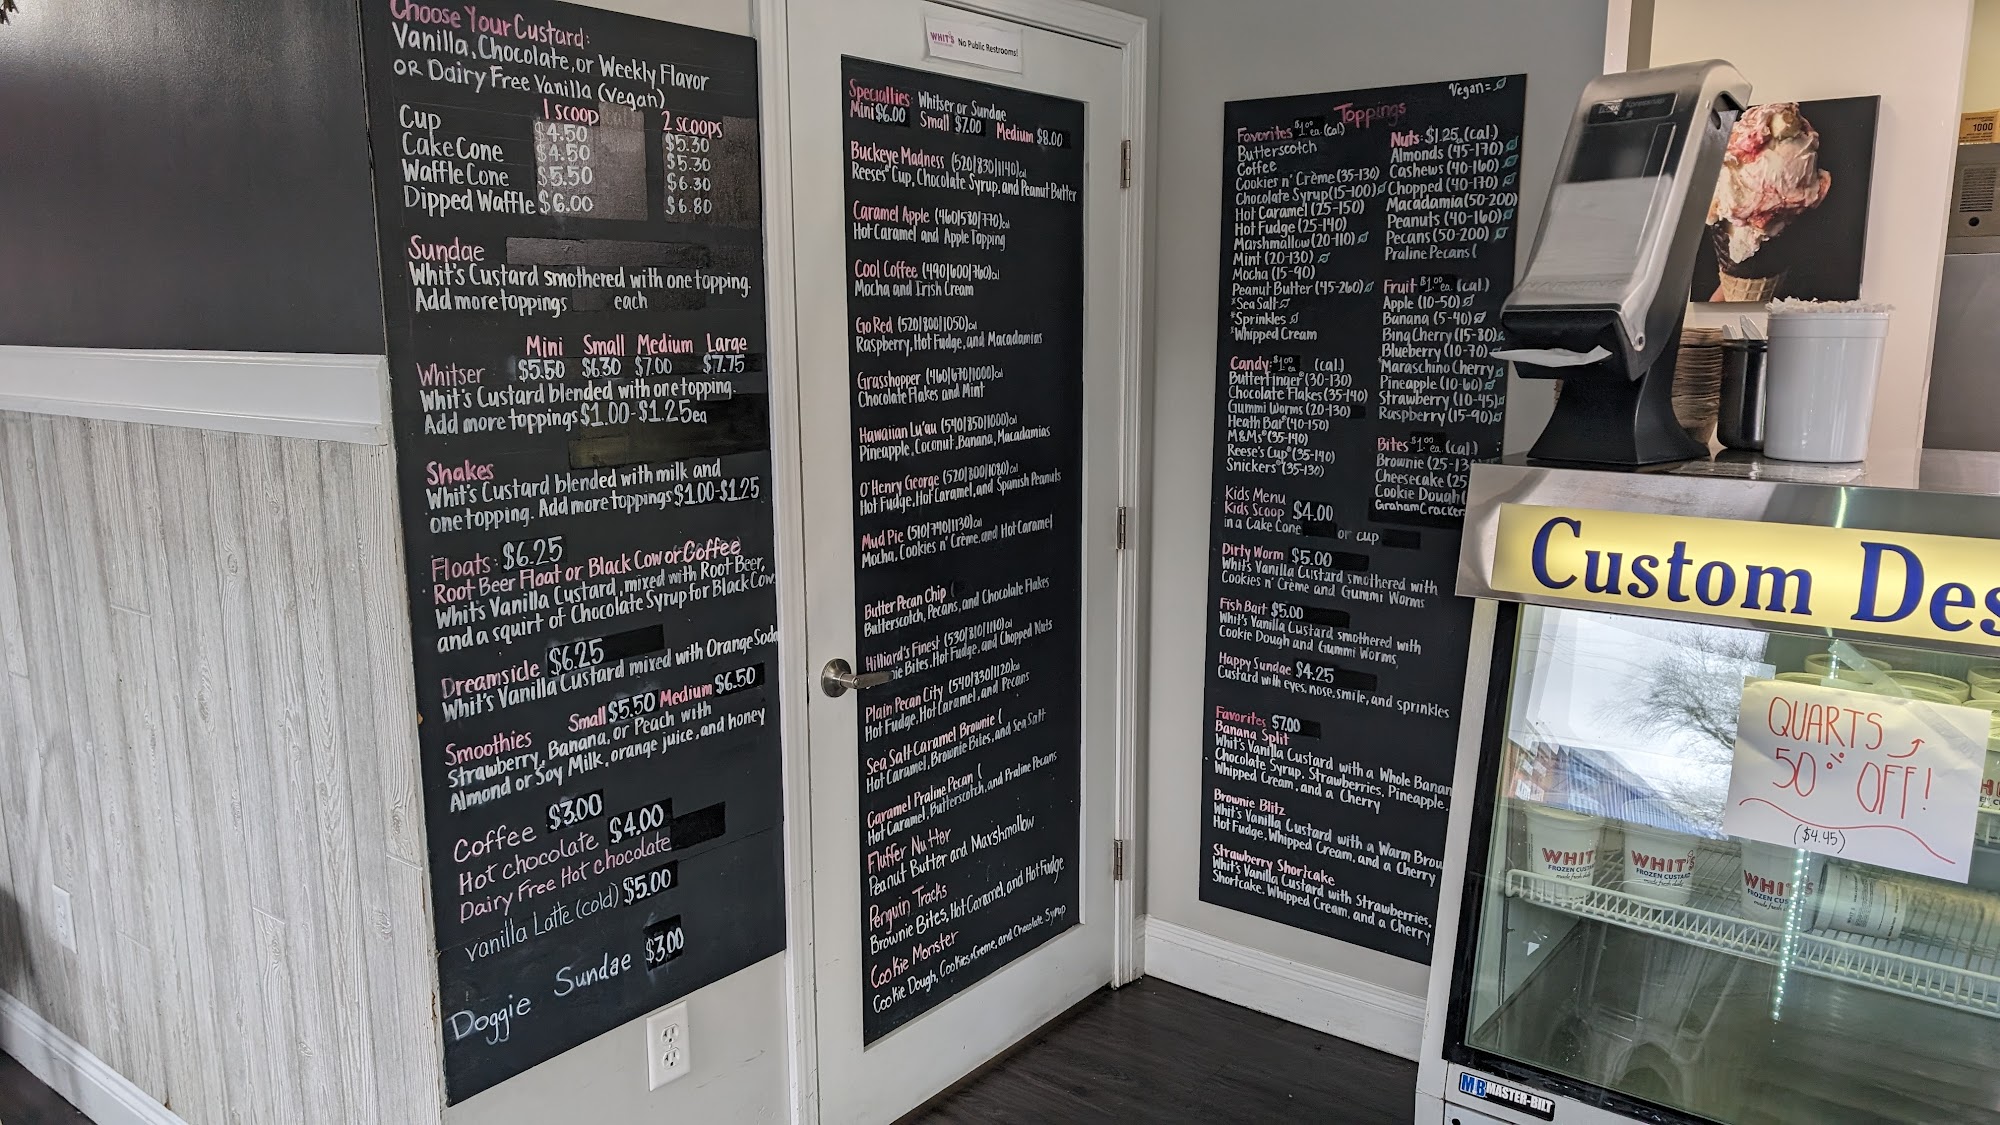 Choose Your Custard:
Vanilla, Chocolate, or Weekly Flavor
or Dairy Free Vanilla (Vegan)
1 scoop 2 scoops
Cup $4.50 $5.30
Cake Cone $4.50 $5.30
Waffle Cone $5.50 $6.30
Dipped Waffle $6.00 $6.80
Sundae
Whit's Custard smothered with one topping.
Add more toppings each
Mini Small Medium Large
Whitser $5.50 $6.30 $7.00 $7.75
Whit's Custard blended with one topping.
Add more toppings $1.00-$1.25 ea
Shakes
Whit's Custard blended with milk and
one topping. Add more toppings $1.00-$1.25
Floats: $6.25
Root Beer Float or Black Cow or Coffee
Whit's Vanilla Custard, mixed with Root Beer,
and a squirt of Chocolate Syrup for Black Cow
Dreamside $6.25
Whit's Vanilla Custard mixed with Orange Soda
Small $5.50 Medium $6.50
Smoothies
Strawberry, Banana, or Peach with
Almond or Soy Milk, orange juice, and honey
Coffee $3.00
Hot chocolate $4.00
Dairy Free Hot chocolate
Vanilla Latte (cold) $5.00
Doggie Sundae $3.00
WHIT'S No Public Restrooms!
Specialties: Whitser or Sundae
Mini $6.00 Small $7.00 Medium $8.00
Buckeye Madness (520|830|1140)cal
Reeses® Cup, Chocolate Syrup, and Peanut Butter
Caramel Apple (460|580|770)cal
Hot Caramel and Apple Topping
Cool Coffee (490|600|760)cal
Mocha and Irish Cream
Go Red (520|800|1050)cal
Raspberry, Hot Fudge, and Macadamias
Grasshopper (460|670|1000)cal
Chocolate Flakes and Mint
Hawaiian Lu'au (540|850|1000)cal
Pineapple, Coconut, Banana, Macadamias
O'Henry George (520|800|1080)cal
Hot Fudge, Hot Caramel, and Spanish Peanuts
Mud Pie (510|790|1130)cal
Mocha, Cookies n' Crème, and Hot Caramel
Butter Pecan Chip (
Butterscotch, Pecans, and Chocolate Flakes
Hilliard's Finest (530|810|1110)cal
nie Bites, Hot Fudge, and Chopped Nuts
Plain Pecan City (540|830|1120)cal
Hot Fudge, Hot Caramel, and Pecans
Sea Salt-Caramel Brownie (
Hot Caramel, Brownie Bites, and Sea Salt
Caramel Praline Pecan (
Hot Caramel, Butterscotch, and Praline Pecans
Fluffer Nutter
Peanut Butter and Marshmallow
Penguin Tracks
Brownie Bites, Hot Caramel, and Hot Fudge
Cookie Monster
Cookie Dough, Cookies n Creme, and Chocolate Syrup
Vegan =
Toppings
Favorites $1.00 ea. (cal)
Butterscotch
Coffee
Cookies n' Crème (35-130)
Chocolate Syrup (15-100)
Hot Caramel (25-150)
Hot Fudge (25-140)
Marshmallow (20-110)
Mint (20-130)
Mocha (15-90)
Peanut Butter (45-260)
*Sea Salt
*Sprinkles
*Whipped Cream
Candy: $1.00 ea (cal.)
Butterfinger® (30-130)
Chocolate Flakes (35-140)
Gummi Worms (20-130)
Heath Bar® (40-150)
M&Ms® (35-140)
Reese's Cup® (35-140)
Snickers® (35-130)
Nuts: $1.25 (cal.)
Almonds (45-170)
Cashews (40-160)
Chopped (40-170)
Macadamia (50-200)
Peanuts (40-160)
Pecans (50-200)
Praline Pecans (
Fruit $1.00 ea. (cal.)
Apple (10-50)
Banana (5-40)
Bing Cherry (15-80)
Blueberry (10-70)
*Maraschino Cherry
Pineapple (10-60)
Strawberry (10-45)
Raspberry (15-90)
Bites $1.00 ea. (cal.)
Brownie (25-13
Cheesecake (25
Cookie Dough (
Graham Cracker
Kids Menu
Kids Scoop $4.00
in a Cake Cone or cup
Dirty Worm $5.00
Whit's Vanilla Custard smothered with
Cookies n' Crème and Gummi Worms
Fish Bait $5.00
Whit's Vanilla Custard smothered with
Cookie Dough and Gummi Worms
Happy Sundae $4.25
Custard with eyes, nose, smile, and sprinkles
Favorites $7.00
Banana Split
Whit's Vanilla Custard with a Whole Banan
Chocolate Syrup, Strawberries, Pineapple,
Whipped Cream, and a Cherry
Brownie Blitz
Whit's Vanilla Custard with a Warm Brow
Hot Fudge, Whipped Cream, and a Cherry
Strawberry Shortcake
Whit's Vanilla Custard with Strawberries,
Shortcake, Whipped Cream, and a Cherry
1000
Custom Des
QUARTS
50% OFF!
($4.45)
WHIT'S
FROZEN CUSTARD
made fresh daily
WHIT'S
FROZEN CUSTARD
made fresh daily
WHIT'S
FROZEN CUS
made fresh
MB MASTER-BILT